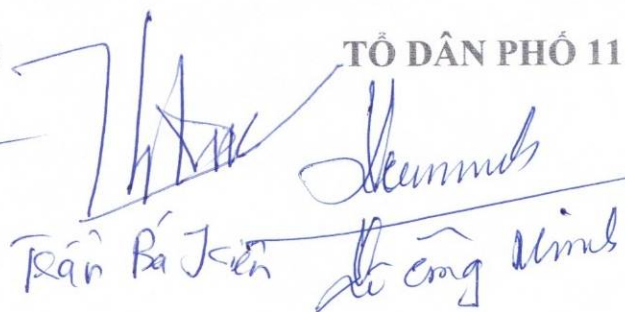 TỔ DÂN PHỐ 11
Trần Bá Kiên
Công Minh